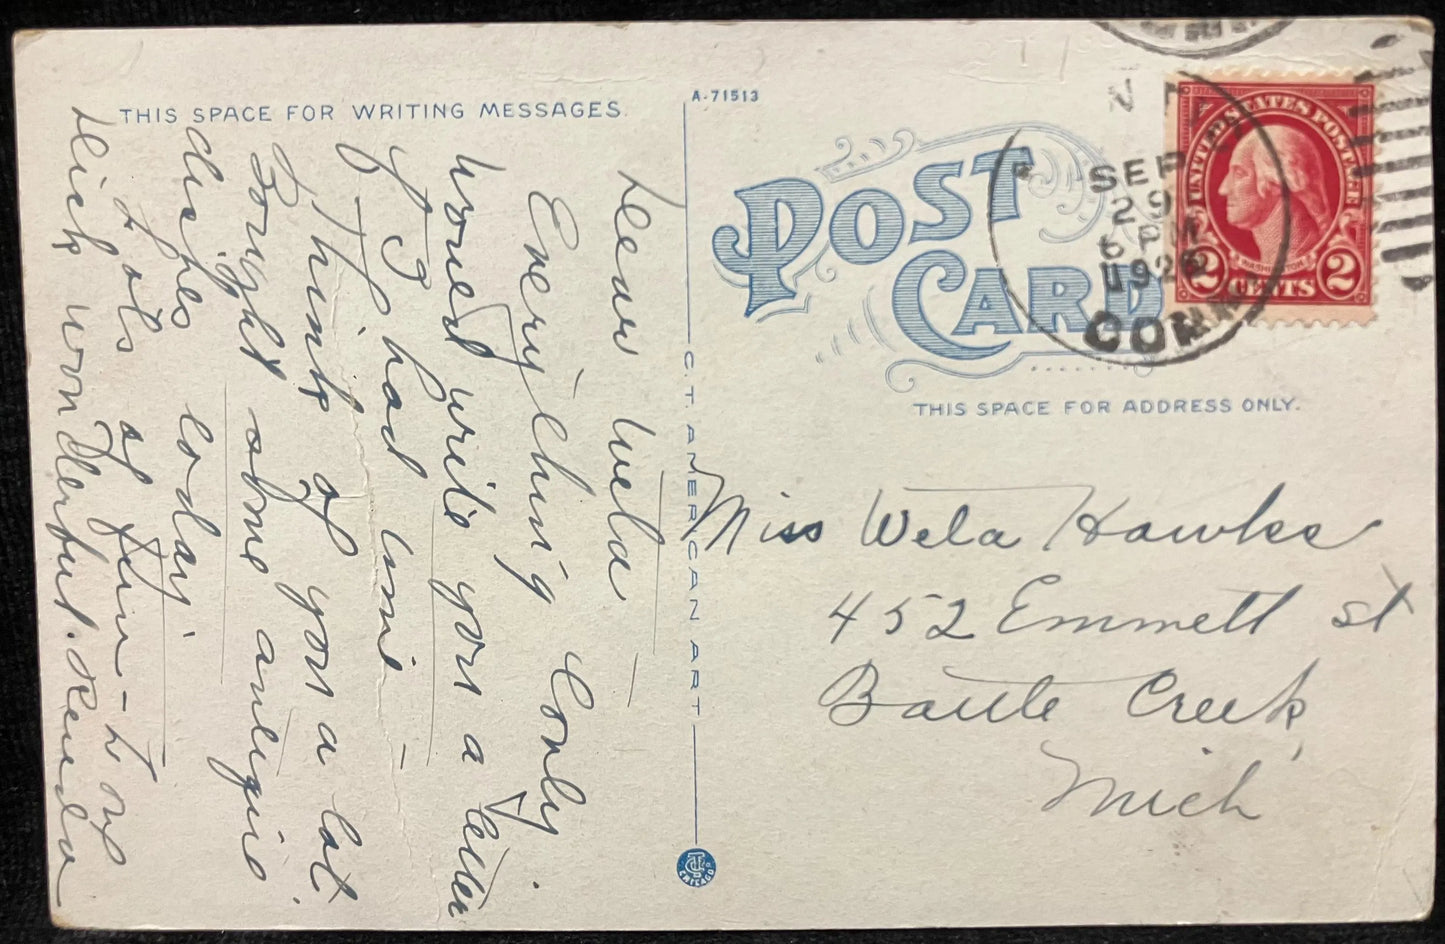 THIS SPACE FOR WRITING MESSAGES.
A-71513
POST
CARD
SEP
29
6 PM
1926
CONN
UNITED STATES POSTAGE
WASHINGTON
2 CENTS 2
THIS SPACE FOR ADDRESS ONLY.
C. T. AMERICAN ART
CHICAGO
Dear Wela
Everything lovely
would write you a letter
if I had time
Think of you a lot
Bought some antique
dishes today
Lots of fun - to us
Dick wonderful.
Miss Wela Hawks
452 Emmett St
Battle Creek,
Mich